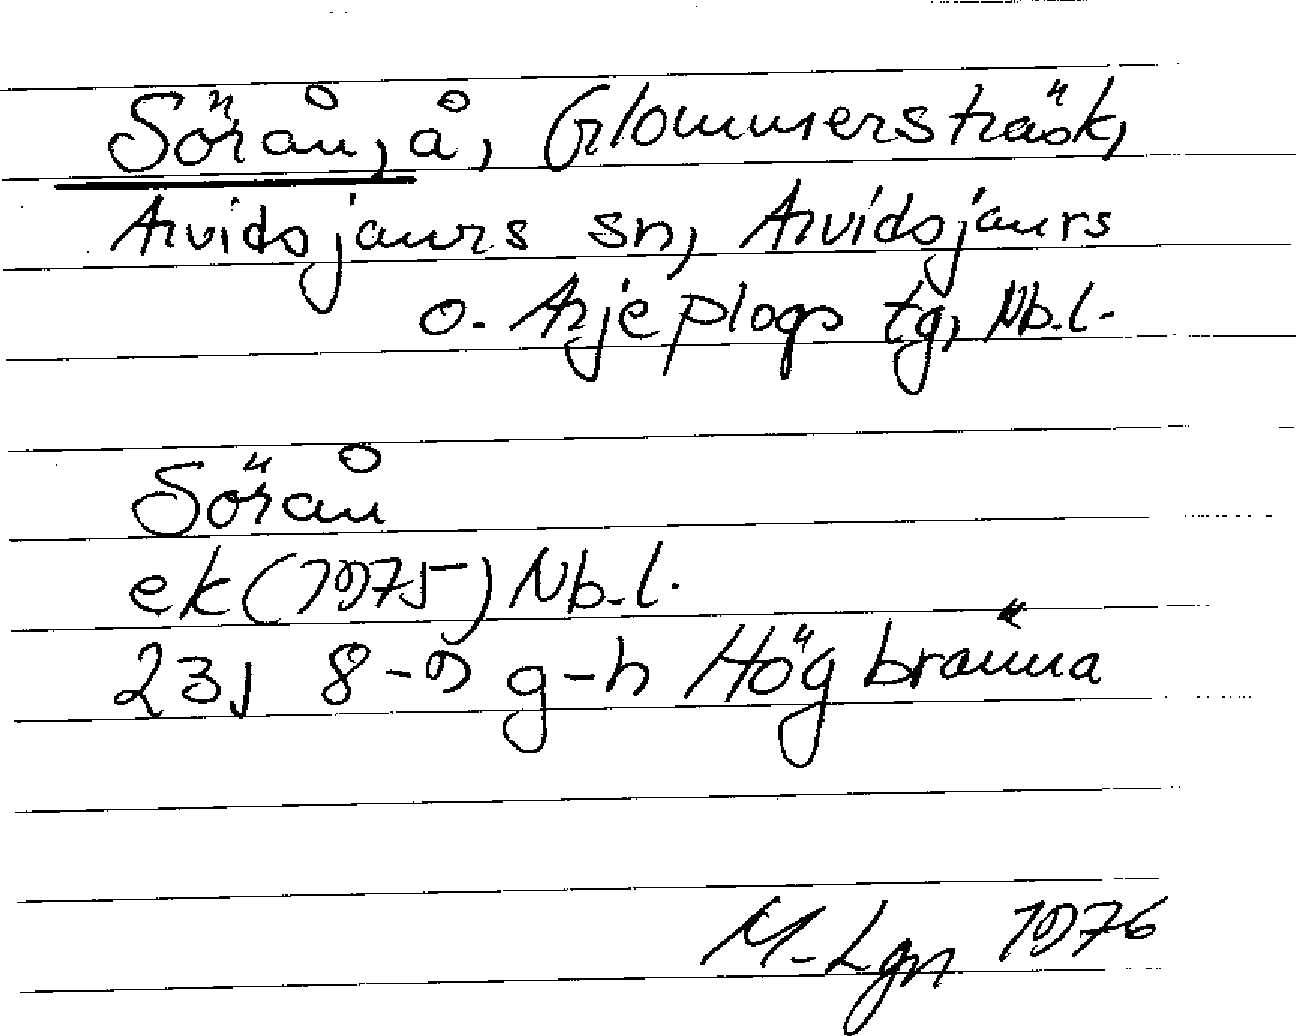 Sörån, å, Glommersträsk,
Arvidsjaurs sn, Arvidsjaurs
o. Arjeplogs tg, Nb.l.
Sörån
ek (1975) Nb.l.
23J 8-9 g-h Högbränna
M-Lgn 1976